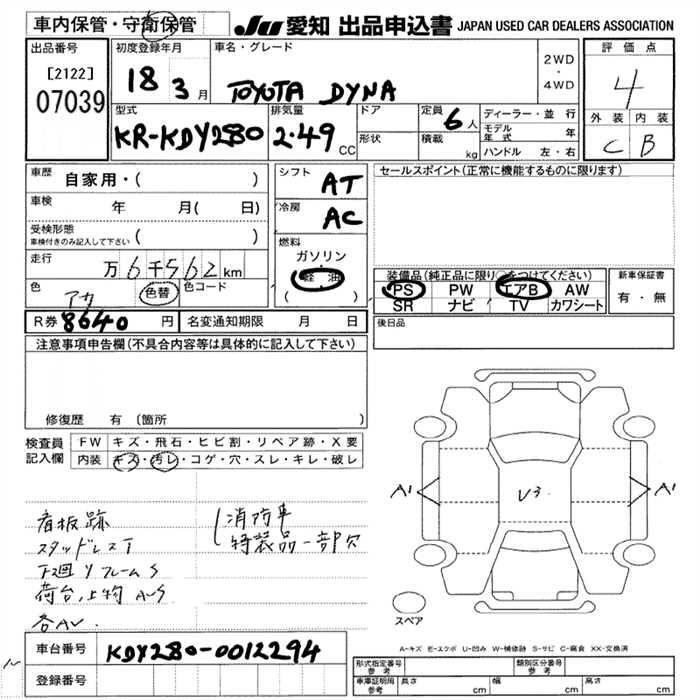 車内保管・守衛保管
JU 愛知 出品申込書 JAPAN USED CAR DEALERS ASSOCIATION
出品番号
[2122]
07039
初度登録年月
18 3月
車名・グレード
TOYOTA DYNA
2WD
・
4WD
評価点
4
外装 内装
C B
型式
KR-KDY280
排気量
2.49 CC
ドア
形状
定員 6人
積載 kg
ディーラー・並行
モデル年式 年
ハンドル 左・右
車歴 自家用・( )
車検 年 月(日)
受検形態
車検付きのみ記入して下さい ( )
走行 万6千562km
色 アカ 色替 色コード
シフト AT
冷房 AC
燃料
ガソリン
軽油
( )
セールスポイント(正常に機能するものに限ります)
装備品(純正品に限り○をつけてください)
PS PW エアB AW
SR ナビ TV カワシート
新車保証書
有・無
R券 8640円
名変通知期限 月 日
後日品
注意事項申告欄(不具合内容等は具体的に記入して下さい)
修復歴 有 〔箇所 〕
検査員記入欄
FW キズ・飛石・ヒビ割・リペア跡・X要
内装 キズ・汚レ・コゲ・穴・スレ・キレ・破レ
看板跡
スタッドレスT
下廻リフレームS
荷台、上物 AUS
消防車
特装品一部欠
A1
V3
A1
スペア
A-キズ E-エクボ U-凹み W-補修跡 S-サビ C-腐食 XX-交換済
車台番号 KDY280-0012294
登録番号
形式指定番号
参考
類別区分番号
参考
車庫証明用
参考
長さ cm 幅 cm 高さ cm